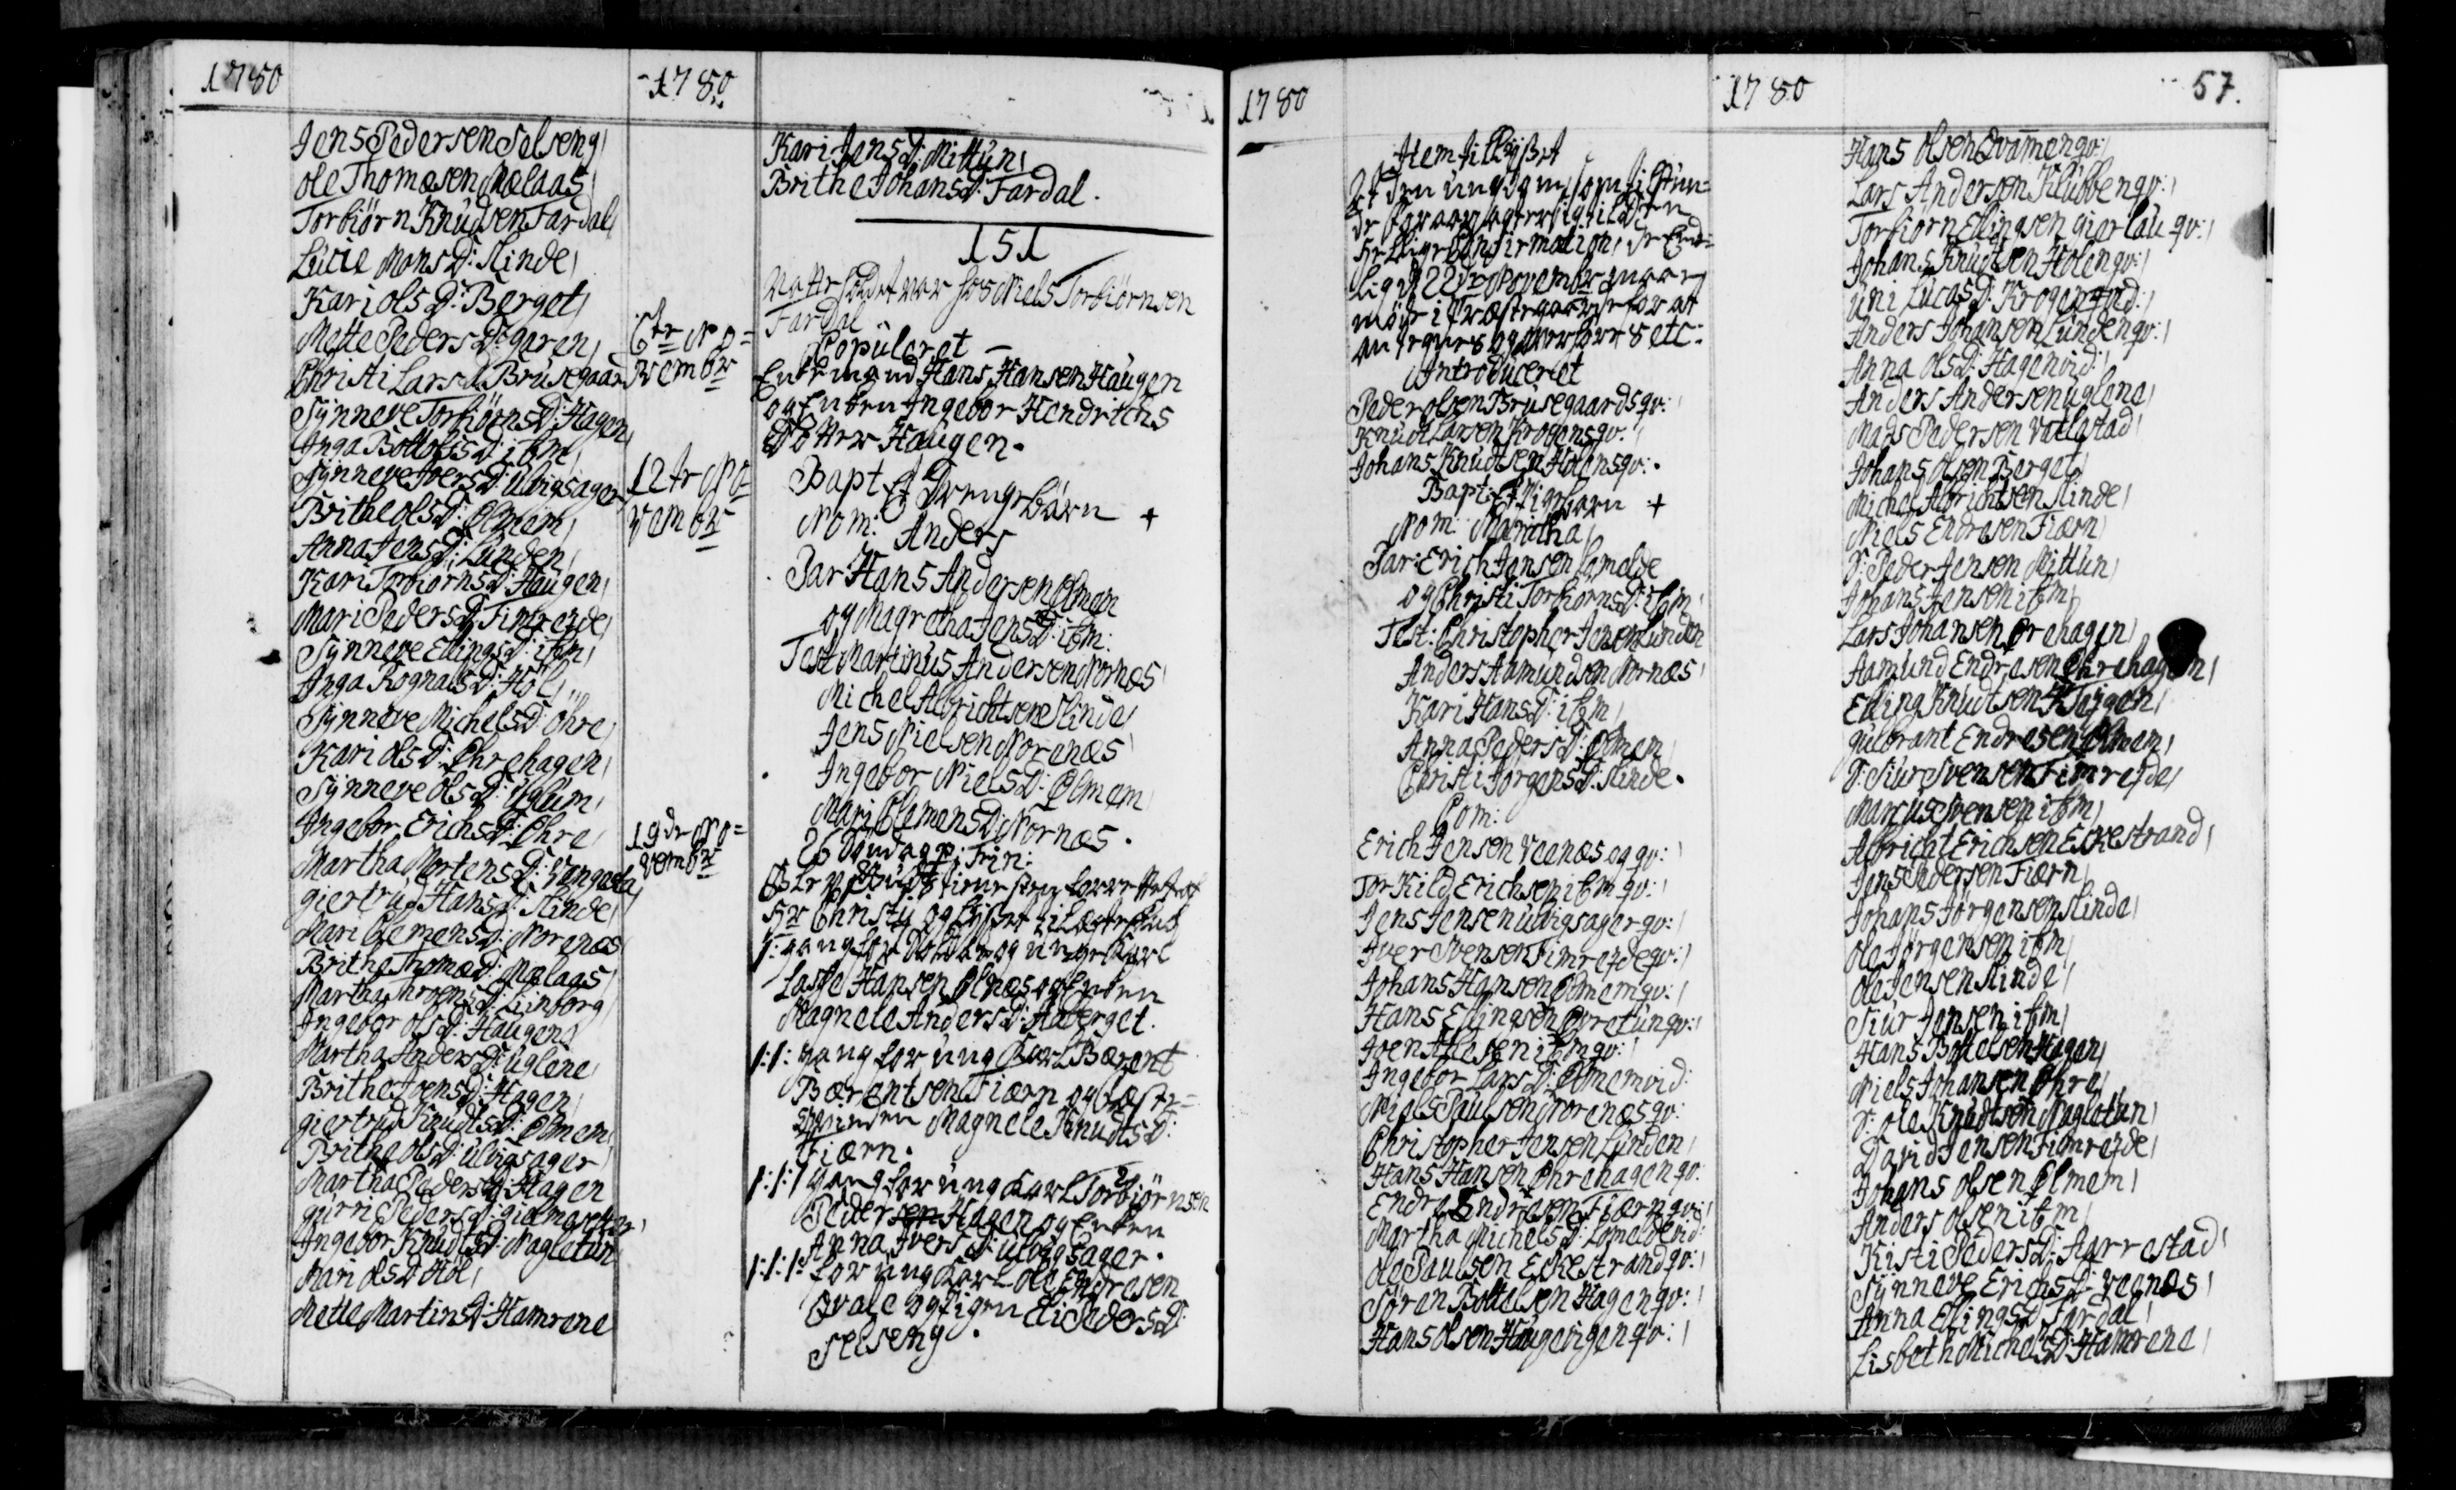 1780
Jens Pedersen Selseng
Ole Thomæsen Mælaas
Torbiörn Knudsen Fardal
Lucie Mons D: Slinde
Kari Ols D: Berget
Mette Peders D: garen
Christi Lars D: Brusegaard
Synneve Torbiörns D: Hagen
Inga Bottolfs D: ibm
Synneve Ivers D: Ulvigsager
Brithe Ols D: Ølmem
Anna Jens D: Lunden
Kari Torbiörns D: Haugen
Mari Peders D: Fimreyde
Synneve Ellings D: ibm
Inga Rognals D: Höl
Synneve Michels D: Öhre
Kari Ols D: Öhrehagen
Synneve Ols D: Uglum
Ingebor Erichs D: Öhre
Martha Mortens D: Vangesta
giertrud Hans D: Slinde
Mari Clemens D: Norenæs
Brithe Thomæ D: Mælaas
Martha Throens D: Linborg
Ingebor Ols D: Haugene
Martha Anders D: Uglene
Brithe Ivens D: Hagen
giertrud Knudts D: Ølmem
Brithe Ols D: Ulvigsager
Martha Peders D: Hagen
gurri Peders D: gielmesetter
Ingebor Knudts D: Nagletun
Mari Ols D Höl
Mette Martins D: Hamrene
1780
6te No=
vembr
12te No=
vembr
19de No=
vembr
Kari Jens D: Mittun
Brithe Johans D: Fardal.
151
hos Niels Torbiörnsen
Fardal
Copuleret
Enkemand Hans Hansen Haugen
og Enken Ingebor Hendrichs
Dotter Haugen.
Bapt. Et Drenge barn +
Nom: Anders
Par Hans Andersen Ølmem
og Magretha Jens D: ibm:
Test Martinus Andersen Nornæs
Michel Albrichtsen Slinde
Jens Nielsen Norenæs
Ingebor Niels D: Ølmem
Mari Clemens D: Nornæs.
26 Söndag p: Trin:
Hr Christy og
/: gang for unge Karl
Lasse Hansen Ølnæs og Enken
Magnele Anders D: Aaberget.
/:/: gang for ung Karl Bærent
Bærentsen Fiærn og
qvinden Magnele Knudts D:
Fiærn.
/:/:/ gang for ung Karl Torbiörnsen
Pedersen Hagen og Enken
Anna Ivers D: Ulvigsager.
/:/:/: for ung Karl Ole Endresen
Qvale og Pigen Eli Peders D:
Selseng.
1780
Item tillyset
At den ungdom som
Hellige Confirmation,
ligen 22de Novembr
möde i Præstegaarden for at
antegnes og overhöres etc:
Introduceret
Peder Olsen Brusegaards qv:
Knudt Larsen Krogens qv:
Johans Knudtsen Holens qv:.
Bapt: Et Pige barn +
Nom: Maritha
Par: Erich Jensen Lomelde
og Christi Torbiörns D: ibm
Test: Christopher Jensen Lunden
Anders Aamundsen Nornæs
Kari Hans D: ibm
Anna Peders D: Ølmem
Christi Jörgens D: Slinde.
Com:
Erich Jensen Veenæs og qv:
Torkild Erichsen ibm qv:
Jens Jensen Ulvigsager qv:
Iver Svensen Fimreyde qv:
Johans Hansen Ølmem qv:
Hans Ellingsen Øvretun qv:
Iven Atlesen ibm qv:
Ingebor Lars D: Ølmem vid:
Niels Paulsen Norenæs qv:
Christopher Jensen Lunden
Hans Hansen Öhrehagen qv:
Endre Endresen Fiærn qv:
Martha Michels D: Lomelde vid:
Ole Paulsen Eskestrand qv:
Sören Bottelsen Hagen qv:
Hans Olsen Haugevigen qv:
1780
57.
Hans Olsen Qvamen qv:
Lars Andersen Klubben qv:
Torbiörn Ellingsen gierlau qv:
Johans Knudtsen Holen qv:
Uni Lucas D: Krogen vid:
Anders Johansen Lunden qv:
Anna Ols D: Hagen vid:
Anders Andersen Uglene
Mads Pedersen Vatlestad
Johans Olsen Berget
Michel Albrichtsen Slinde
Niels Endresen Fiærn
D: Peder Jensen Mittun
Johans Jensen ibm
Lars Johansen Örehagen
Aamund Endresen Öhrehagen
Elling Knudtsen Teigen
gulbrant Endresen Ølmem
D: Siur Svensen Fimreyde
Marcus Svensen ibm
Albricht Erichsen Eskestrand
Jens Pedersen Fiærn
Johans Jörgensen Slinde
Ole Jörgensen ibm
Ole Jensen Slinde
Siur Jensen ibm
Hans Bottelsen Hagen
Niels Johansen Öhre
D: Ole Knudtsen Nagletun
David Jensen Fimreyde
Johans Olsen Ølmem
Anders Olsen ibm
Kisti Peders D: Aarrestad
Synneve Erichs D: Veenæs
Anna Ellings D: Fardal
Lisbeth Michels D: Hamrene